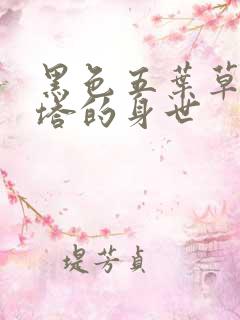 黑色五葉草
塔的身世
堤芳貞